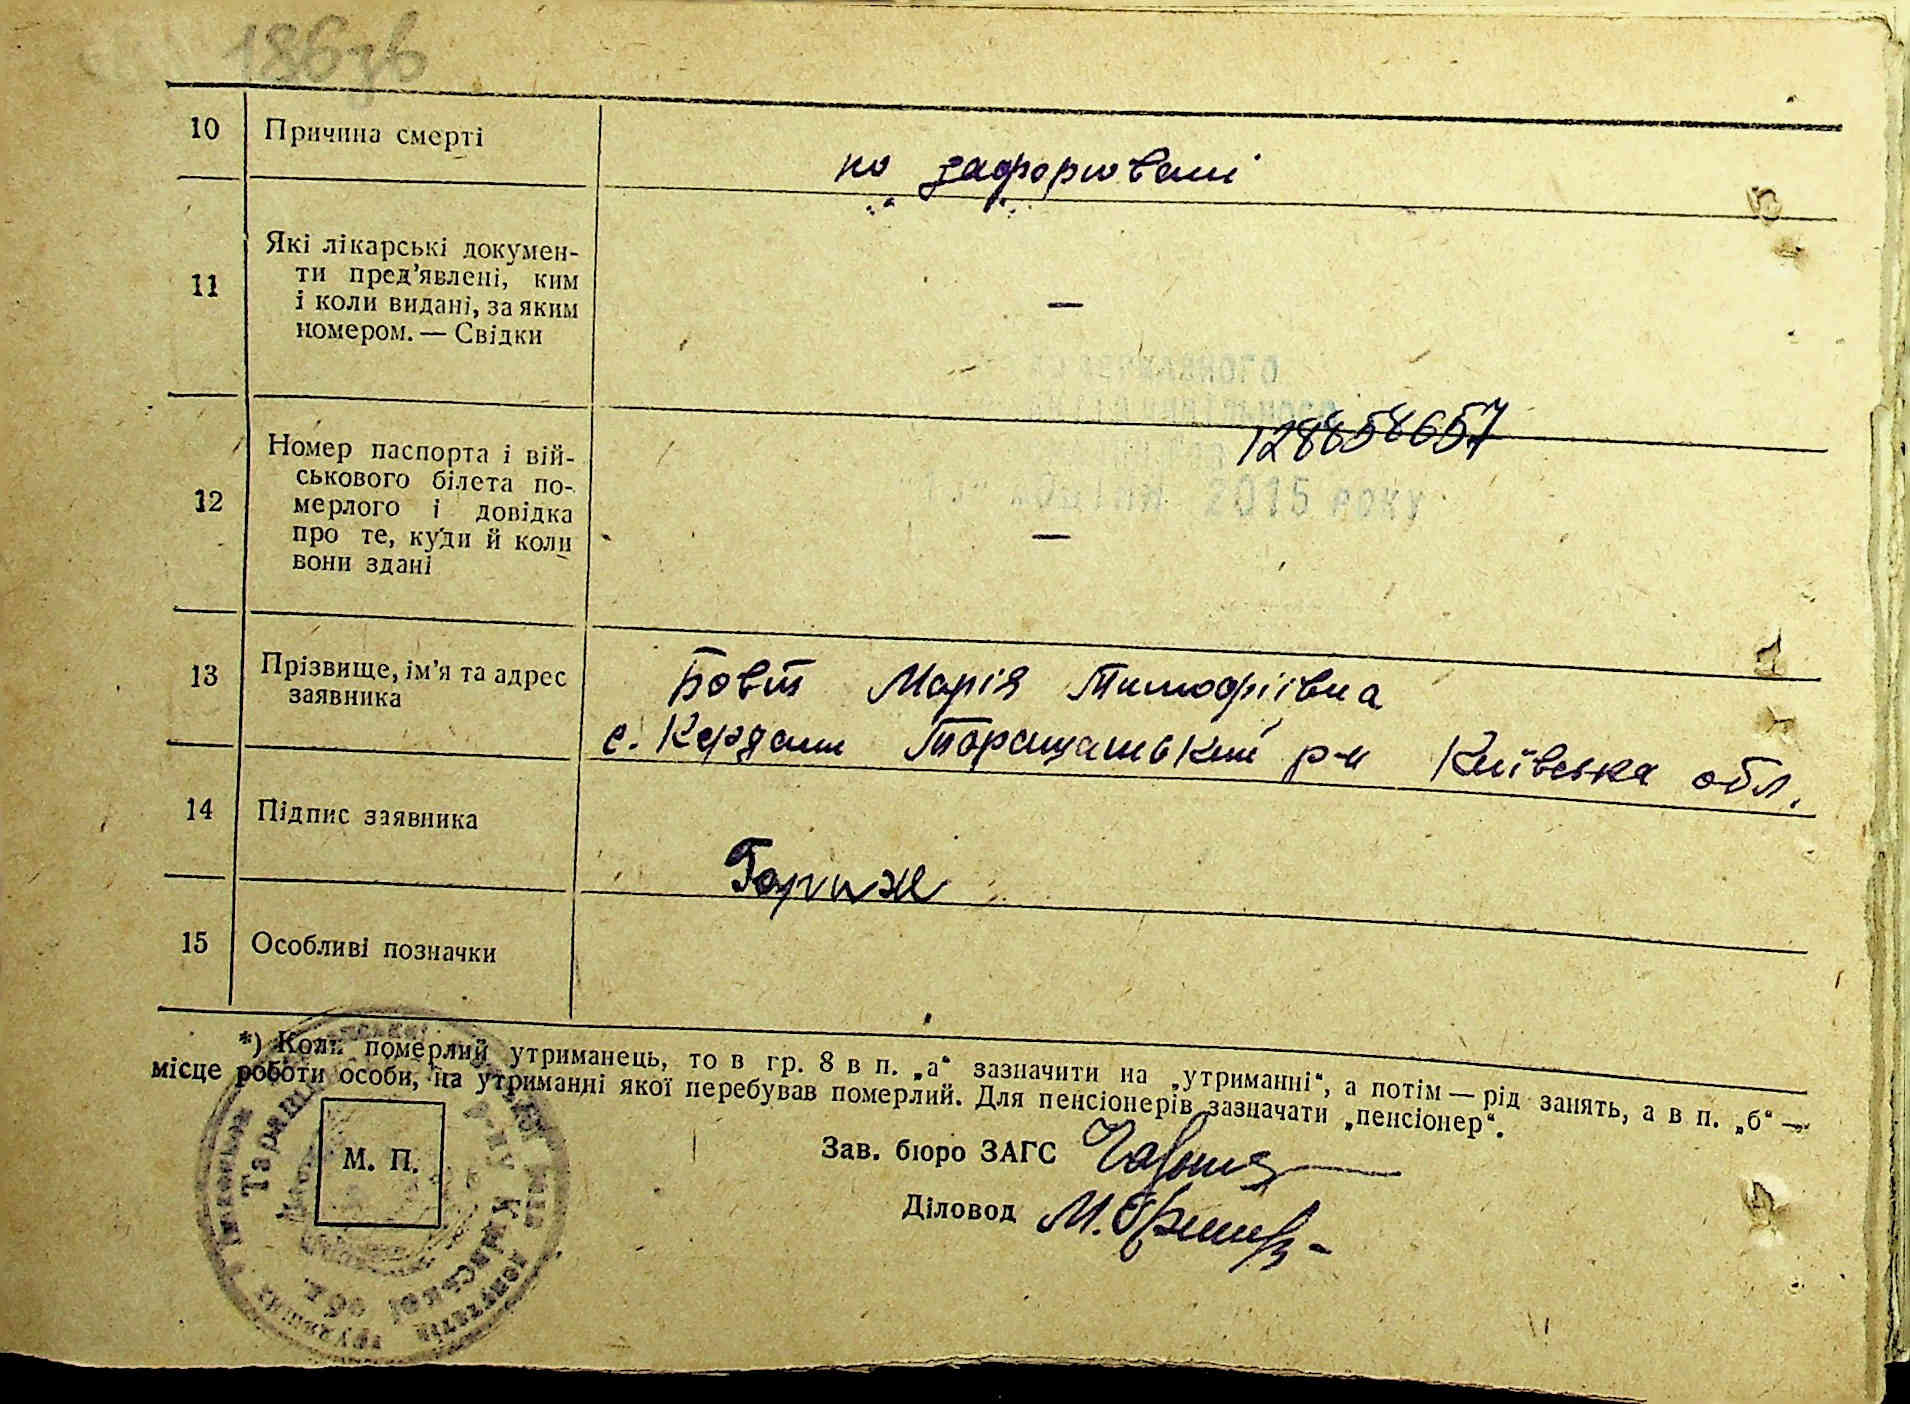 186зв
10 Причина смерті
11 Які лікарські докумен-
ти пред’явлені, ким
і коли видані, за яким
номером. — Свідки
—
ДЕРЖАВНОГО
128858657
12 Номер паспорта і вій-
ськового білета по-
мерлого і довідка
про те, куди й коли
вони здані
2015 року
—
13 Прізвище, ім’я та адрес
заявника
Бовт Марія Тимофіївна
с. Кердани Таращанський р-н Київська обл.
14 Підпис заявника
15 Особливі позначки
*) Коли померлий утриманець, то в гр. 8 в п. „а“ зазначити на „утриманні“, а потім — рід занять, а в п. „б“ —
місце роботи особи, на утриманні якої перебував померлий. Для пенсіонерів зазначати „пенсіонер“.
М. П.
Зав. бюро ЗАГС
Діловод